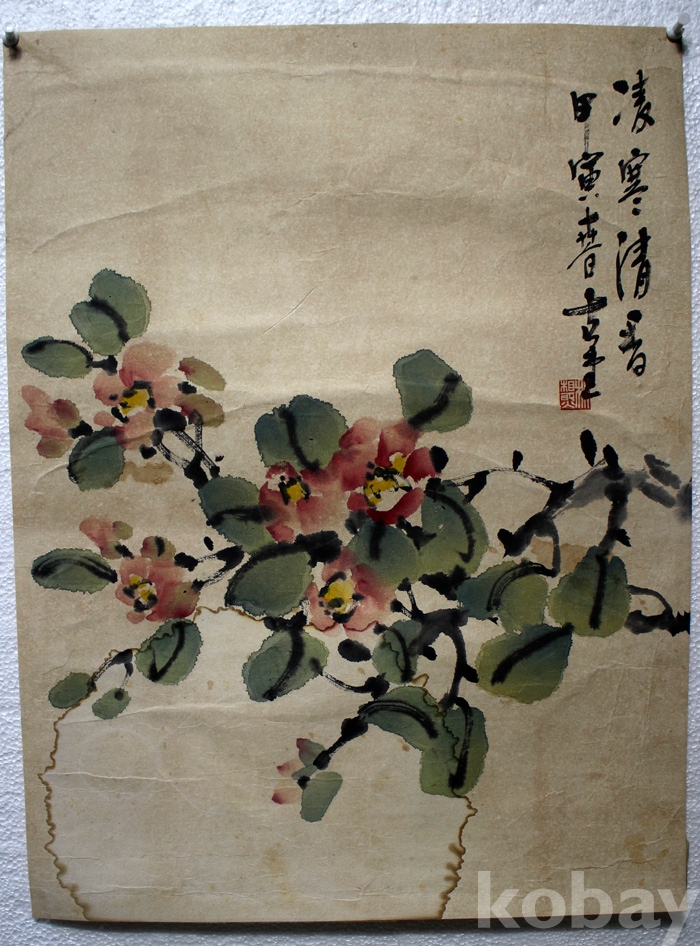 凌寒清香
甲寅春
kobay